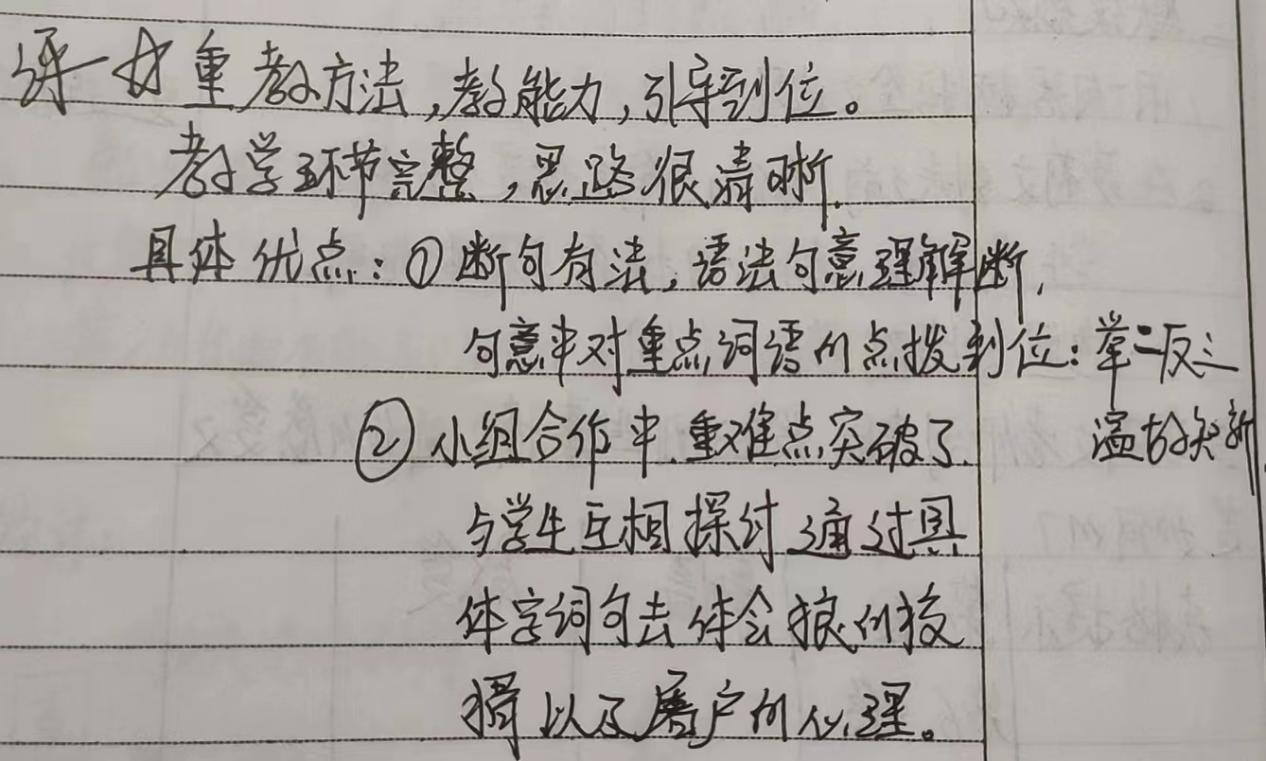 评一：重教方法，教能力，引导到位。
教学环节完整，思路很清晰.
具体优点：①断句有法，语法句意理解断，
句意中对重点词语的点拨到位：举一反三
温故知新
②小组合作中.重难点突破了.
与学生互相探讨通过具
体字词句去体会狼的狡
猾以及屠户的心理。